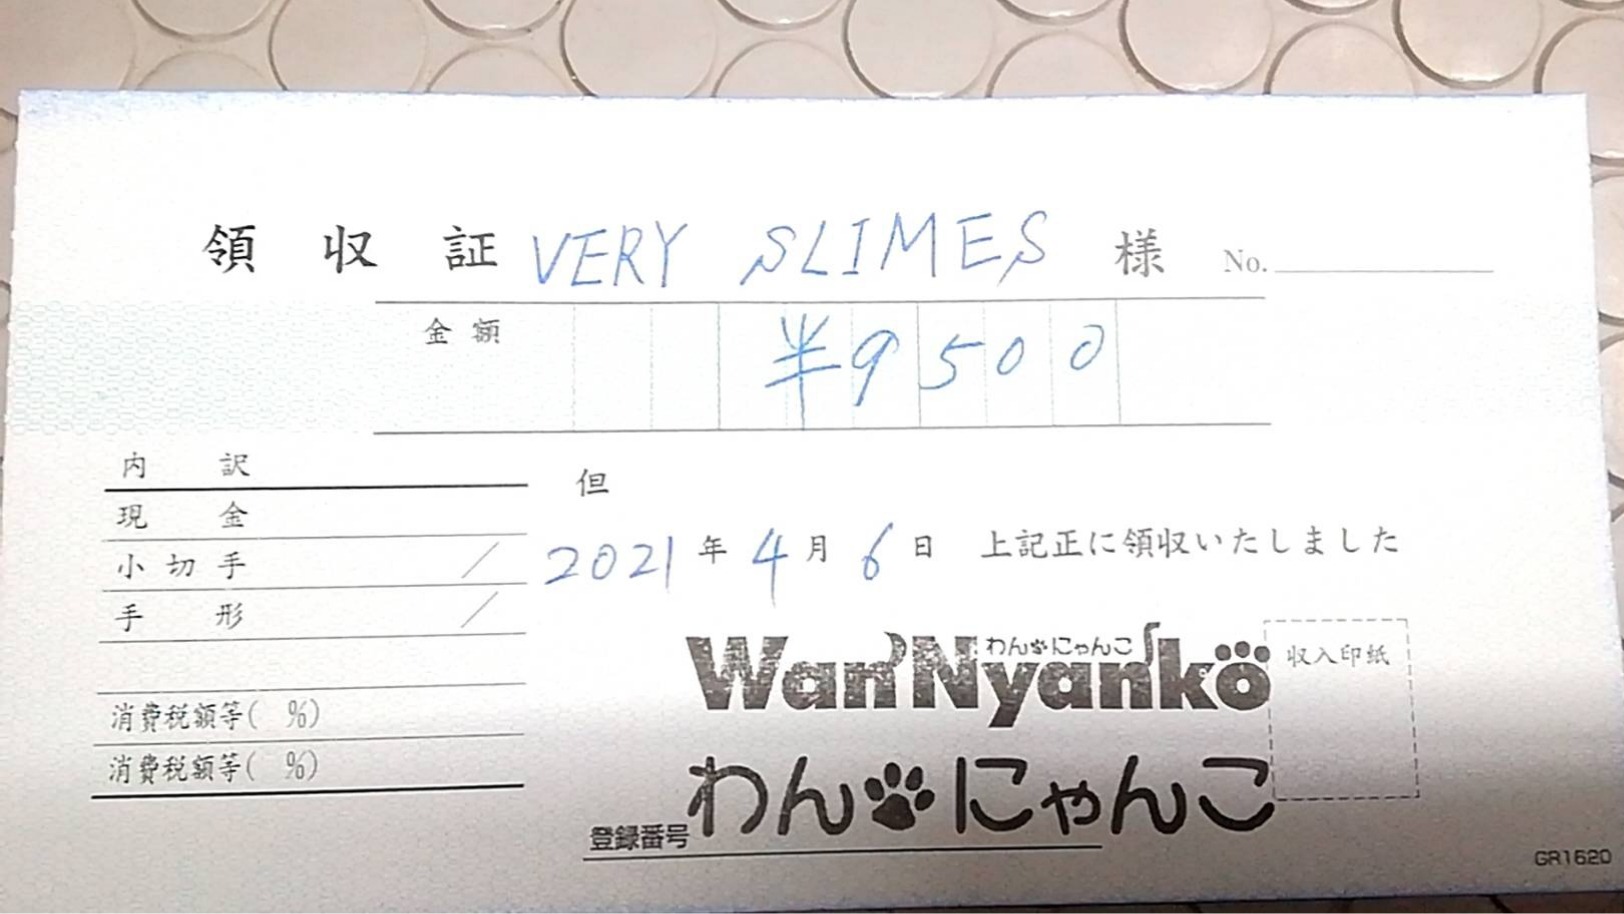 領収証 VERY SLIMES 様 No.
金額 ¥9500
内訳
但
現金
小切手 /
2021年4月6日 上記正に領収いたしました
手形 /
わんにゃんこ
Wan'Nyanko
収入印紙
消費税額等( %)
消費税額等( %)
わんにゃんこ
登録番号
GR1620